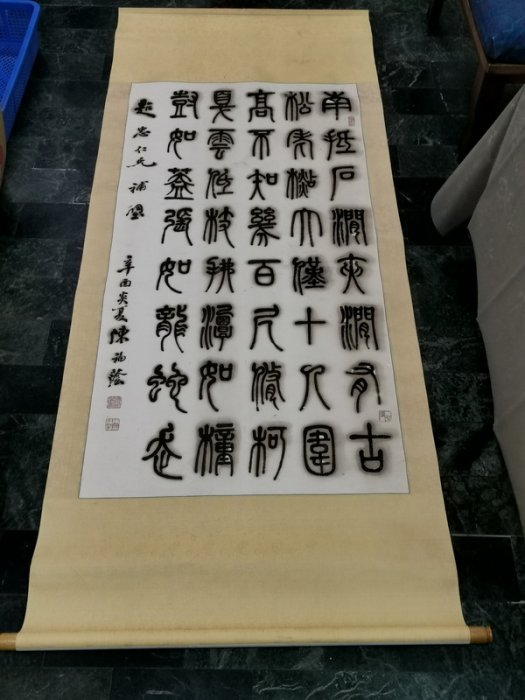 南抵石澗夾澗有古
松老杉大僅十人圍
高不知幾百尺修柯
戛雲低枝拂潭如幢
豎如蓋張如龍蛇走
忠仁兄補壁
辛酉炎夏陳福蔭